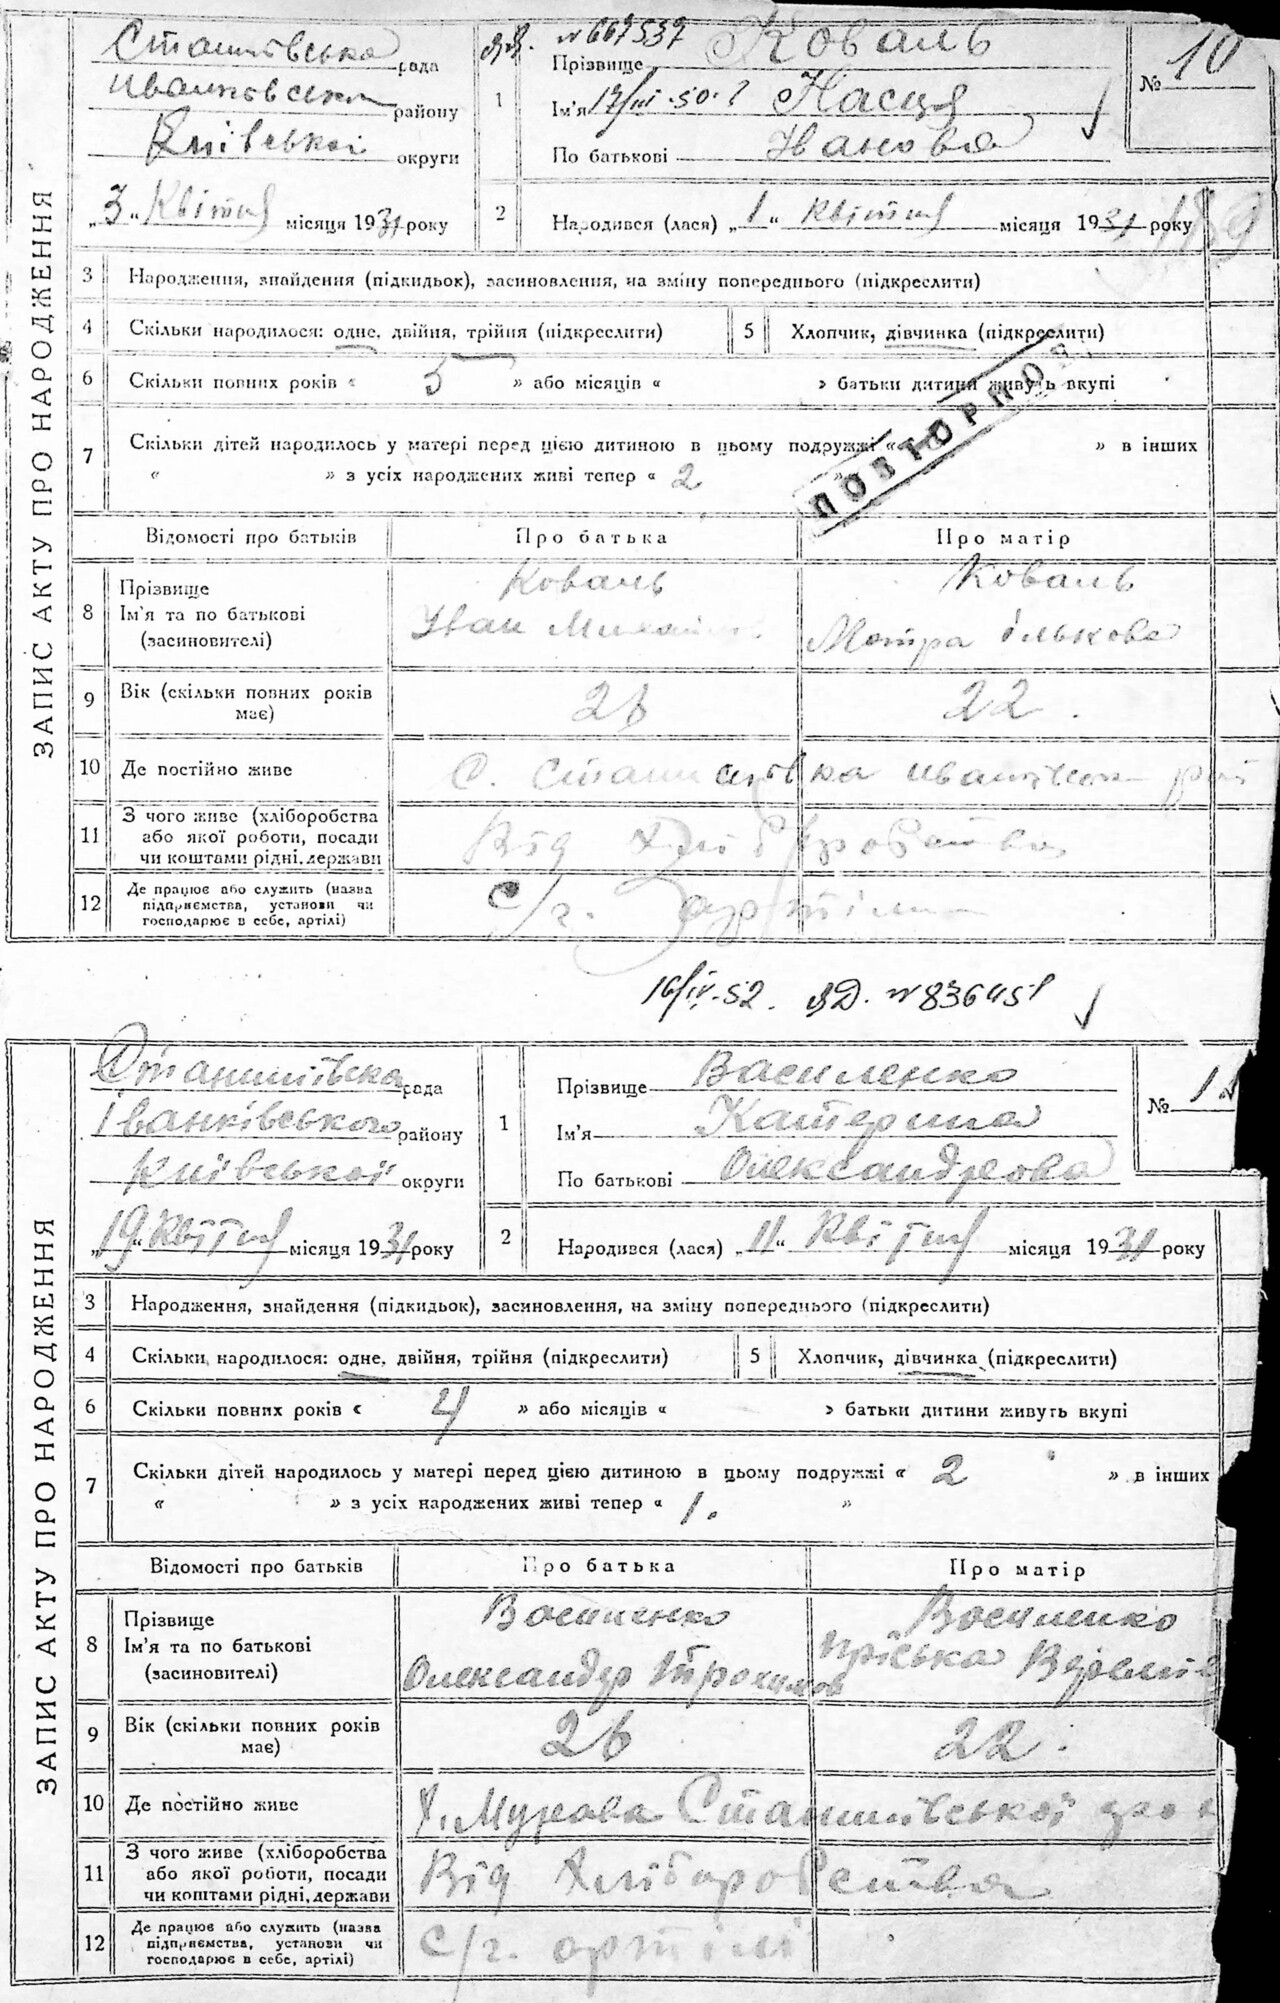 ЗАПИС АКТУ ПРО НАРОДЖЕННЯ
рада
району
Київської округи
„3“ Квітня місяця 1931 року
1
№667537
Прізвище Коваль
Ім'я 17/III-50. Настя
По батькові Іванова
№ 10
2
Народився (лася) „1“ квітня місяця 1931 року
3 Народження, знайдення (підкидьок), засиновлення, на зміну попереднього (підкреслити)
4 Скільки народилося: одне, двійня, трійня (підкреслити) 5 Хлопчик, дівчинка (підкреслити)
6 Скільки повних років « 5 » або місяців « » батьки дитини живуть вкупі
ПОВТОРНОЕ
7 Скільки дітей народилось у матері перед цією дитиною в цьому подружжі « » в інших
« » з усіх народжених живі тепер « 2
Відомості про батьків Про батька Про матір
8 Прізвище Коваль Коваль
Ім'я та по батькові Іван Мотра Ількова
(засиновителі)
9 Вік (скільки повних років має) 26 22.
10 Де постійно живе С.
11 З чого живе (хліборобства або якої роботи, посади чи коштами рідні, держави Від Хліборобства
12 Де працює або служить (назва підприємства, установи чи господарює в себе, артілі) с/г.
16/IV-52. ВД. №836451
ЗАПИС АКТУ ПРО НАРОДЖЕННЯ
рада
Іванківського району
Київської округи
„19“ Квітня місяця 1931 року
1
Прізвище Василенко
Ім'я Катерина
По батькові Олександрова
№
2
Народився (лася) „11“ Квітня місяця 1931 року
3 Народження, знайдення (підкидьок), засиновлення, на зміну попереднього (підкреслити)
4 Скільки народилося: одне, двійня, трійня (підкреслити) 5 Хлопчик, дівчинка (підкреслити)
6 Скільки повних років « 4 » або місяців « » батьки дитини живуть вкупі
7 Скільки дітей народилось у матері перед цією дитиною в цьому подружжі « 2 » в інших
« » з усіх народжених живі тепер « 1. »
Відомості про батьків Про батька Про матір
8 Прізвище Василенко Василенко
Ім'я та по батькові Олександер Трохимов Пріська
(засиновителі)
9 Вік (скільки повних років має) 26 22.
10 Де постійно живе Х.
11 З чого живе (хліборобства або якої роботи, посади чи коштами рідні, держави Від Хліборобства
12 Де працює або служить (назва підприємства, установи чи господарює в себе, артілі) с/г. артілі